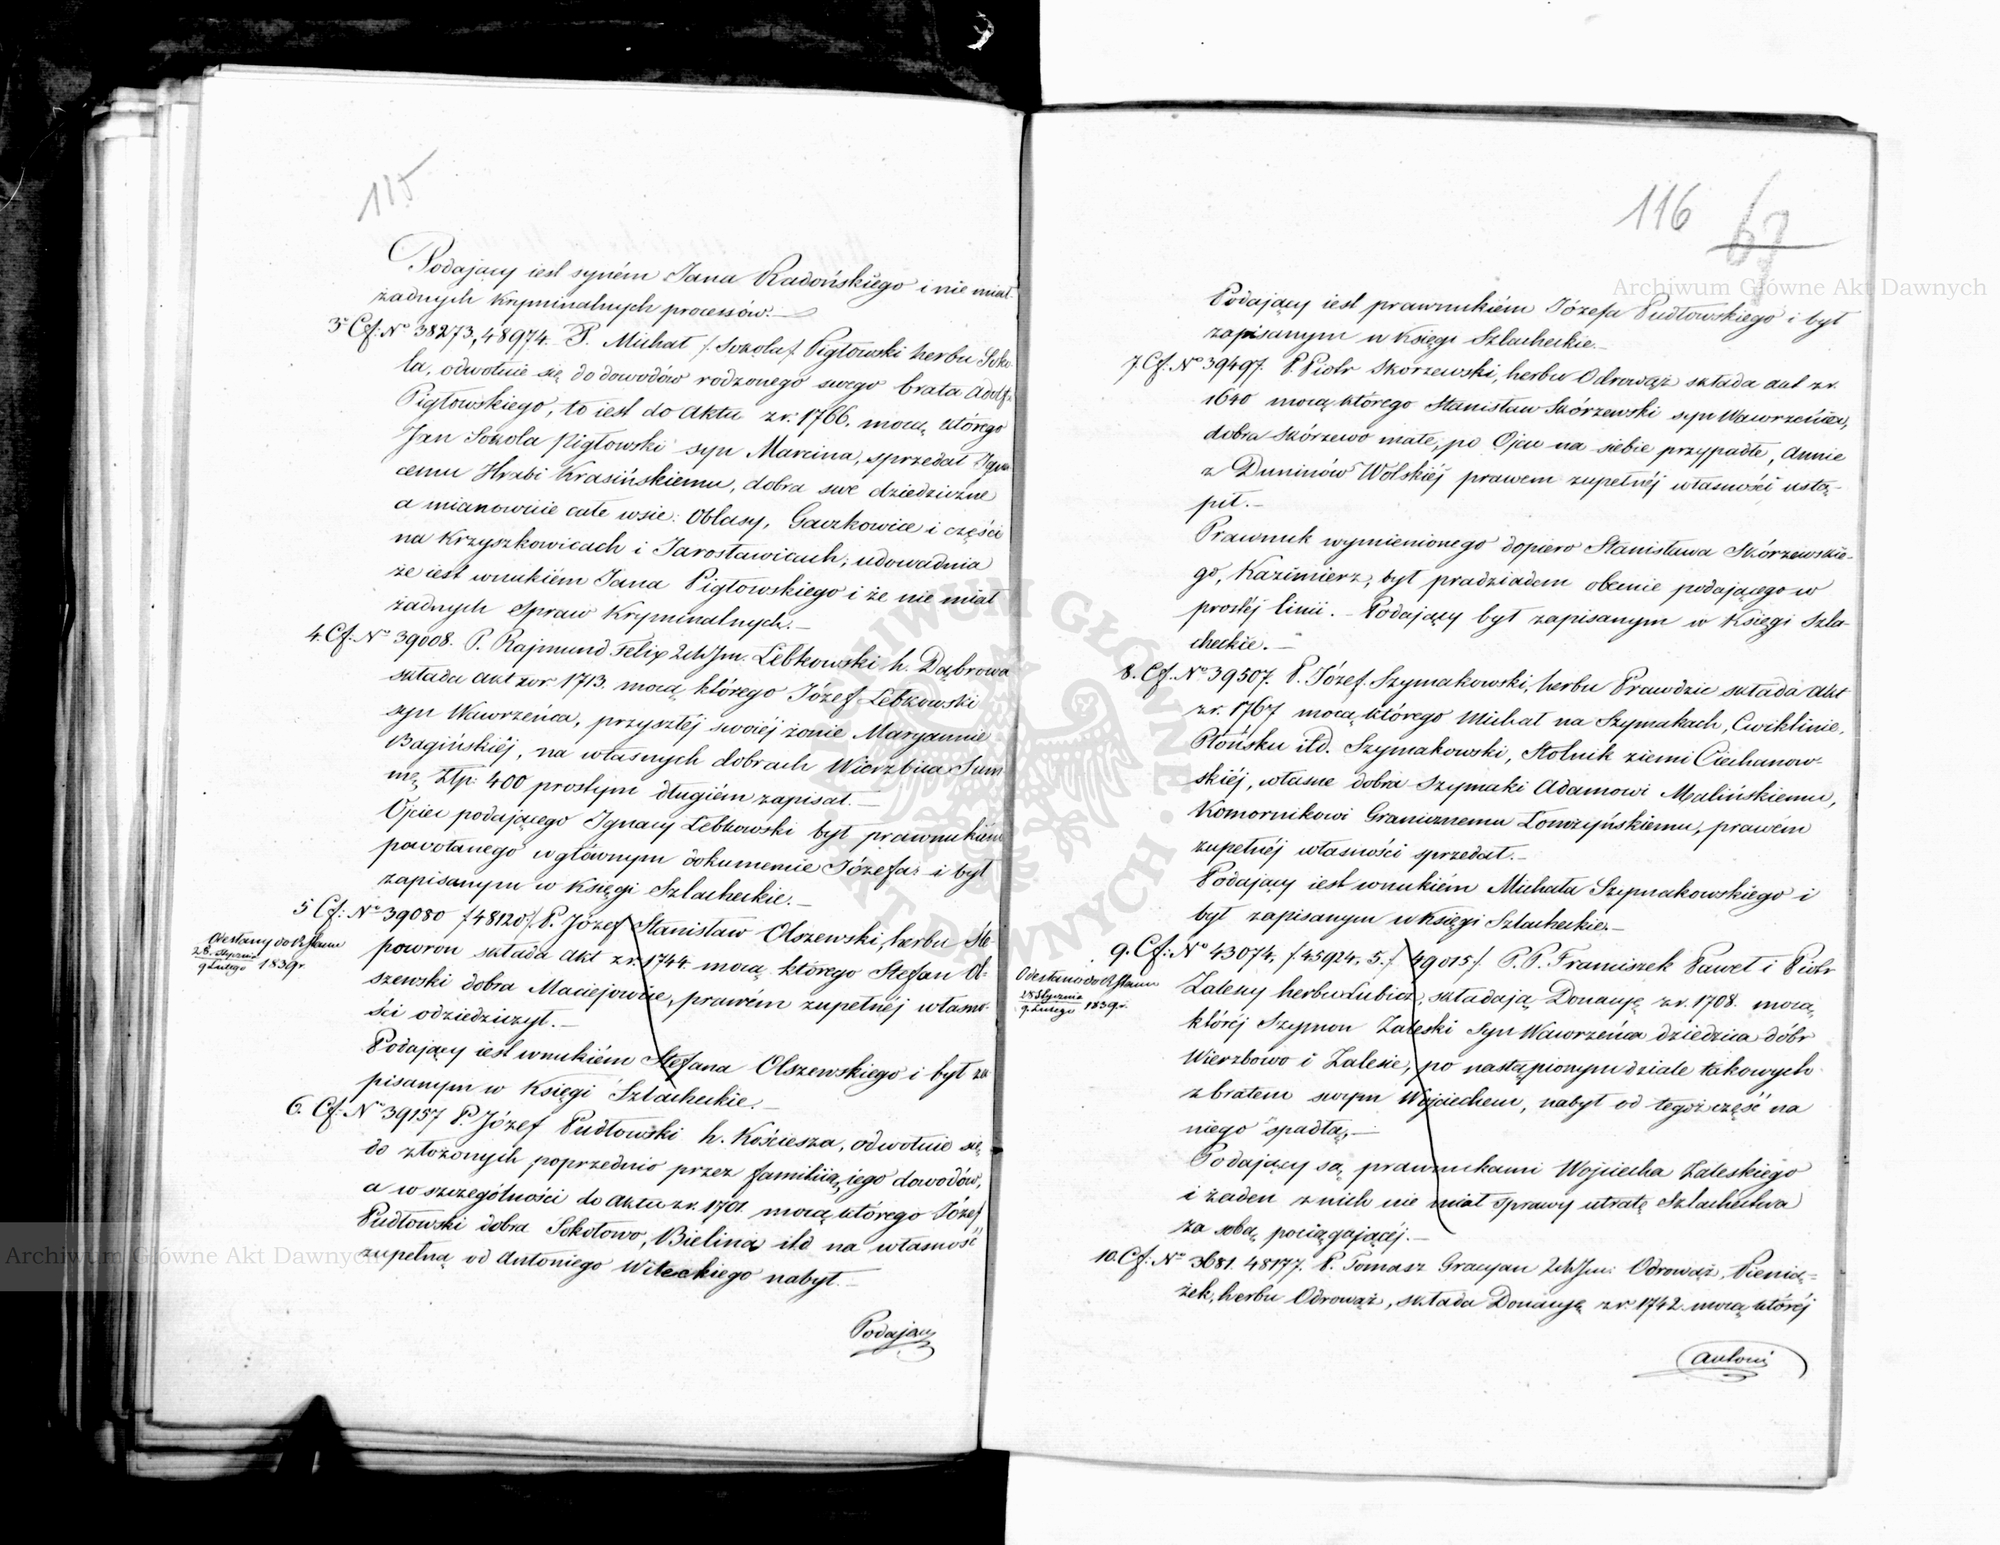 115
Podający iest syném Jana Radońskiego i nie miał
żadnych kryminalnych processów.—
3. Cf: No 38273, 48974. P. Michał /: Sokola /: Pigłowski herbu Soko-
la, odwołuie się do dowodów rodzonego swego brata Adolfa
Pigłowskiego, to iest do Aktu z r: 1766. mocą którego
Jan Sokola Pigłowski syn Marcina, sprzedał Igna
cemu Hrabi Krasińskiemu, dobra swe dziedziczne
a mianowicie całe wsie: Oblasy, Gaczkowice i części
na Krzyszkowicach i Jarosławicach; udowadnia
że iest wnukiém Jana Pigłowskiego i że nie miał
żadnych Spraw Kryminalnych.—
4. Cf: No 39008. P. Rajmund Felix 2ch Im. Lebkowski h. Dąbrowa
składa akt z r 1713. mocą którego Józef Lebkowski
syn Wawrzeńca, przyszłéj swoiéj żonie Maryannie
Bagińskiéj, na własnych dobrach Wierzbica Sum
mę Złp: 400 prostym długiém zapisał.—
Ojciec podającego Ignacy Lebkowski był prawnukiém
powołanego w głównym dokumencie Józefa i był
zapisanym w Księgi Szlacheckie.—
5 Cf: No 39080 /48120/. P. Józef Stanisław Olszewski, herbu Śle-
powron składa Akt z r. 1744. mocą którego Stefan Ol-
szewski dobra Maciejowice, prawém zupełnéj własno-
ści odziedziczył.—
Odesłany do R. Stanu
28. Stycznia
9 Lutego 1839 r.
Podający iest wnukiém Stefana Olszewskiego i był za
pisanym w Księgi Szlacheckie.—
6. Cf: No 39157 P. Józef Pudłowski h. Kościesza, odwołuie się
do złożonych poprzednio przez familiią iego dowodów,
a w szczególności do Aktu z r. 1701. mocą którego Józef
Pudłowski dobra Sokołowo, Bielina itd na własność
zupełną od Antoniego Witeckiego nabył.—
Podający
116
Podający iest prawnukiém Józefa Pudłowskiego i był
zapisanym w Księgi Szlacheckie.—
7. Cf: No 39497. P. Piotr Skorzewski, herbu Odrowąż składa akt z r.
1640 mocą którego Stanisław Skórzewski syn Wawrzeńca,
dobra Skórzewo małe, po Ojcu na siebie przypadłe, Annie
z Duninów Wolskiéj prawem zupełnéj własności ustą-
pił.—
Prawnuk wymienionego dopiero Stanisława Skórzewskie-
go, Kazimierz, był pradziadem obecnie podającego w
prostéj linii.— Podający był zapisanym w Księgi Szla-
checkie.—
8. Cf. No 39507. P. Józef Szymakowski, herbu Prawdzic składa Akt
z r. 1767 mocą którego Michał na Szymakach, Cwiklinie,
Płońsku itd. Szymakowski, Stolnik ziemi Ciechanow-
skiéj, własne dobra Szymaki Adamowi Malińskiemu,
Komornikowi Granicznemu Łomżyńskiemu, prawém
zupełnéj własności sprzedał.—
Podający iest wnukiém Michała Szymakowskiego i
był zapisanym w Księgi Szlacheckie.—
9. Cf: No 43074, /45924, 5./ 49015/. P. P. Franciszek Paweł i Piotr
Zalescy herbu Lubicz, składają Donacyę z r. 1708. mocą
któréj Szymon Zaleski syn Wawrzeńca dziedzica dóbr
Wierzbowo i Zalesie, po nastąpionym dziale takowych
z bratem swym Wojciechem, nabył od tegoż część na
niego spadłą.—
Odesłano do R. Stanu
28 Stycznia
9. Lutego 1839 r.
Podający są prawnukami Wojciecha Zaleskiego
i żaden z nich nie miał sprawy utratę Szlachectwa
za sobą pociągającéj.—
10. Cf: No 3681. 48177. P. Tomasz Gracyan 2ch Im: Odrowąż, Pienią-
żek, herbu Odrowąż, składa Donacyę z r. 1742. mocą któréj
Antoni
Archiwum Główne Akt Dawnych
Archiwum Główne Akt Dawnych
ARCHIWUM GŁÓWNE AKT DAWNYCH